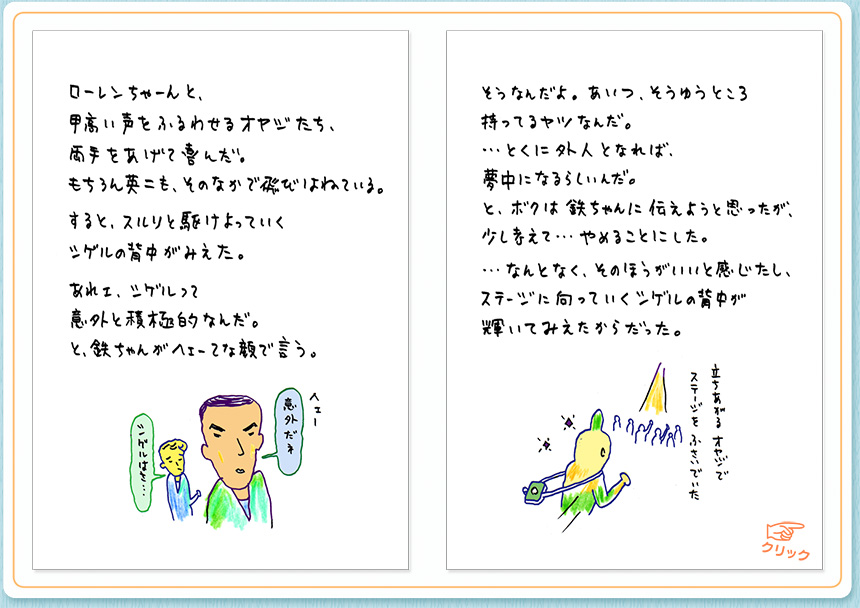 ローレンちゃーんと、
甲高い声をふるわせるオヤジたち、
両手をあげて喜んだ。
もちろん英二も、そのなかで飛びはねている。
すると、スルリと駆けよっていく
シゲルの背中がみえた。
あれェ、シゲルって
意外と積極的なんだ。
と、鉄ちゃんがヘェーてな顔で言う。
ヘェー
意外だネ
シゲルはさ…
そうなんだよ。あいつ、そうゆうところ
持ってるヤツなんだ。
…とくに外人となれば、
夢中になるらしいんだ。
と、ボクは鉄ちゃんに伝えようと思ったが、
少し考えて…やめることにした。
…なんとなく、そのほうがいいと感じたし、
ステージに向っていくシゲルの背中が
輝いてみえたからだった。
立ちあがるオヤジで
ステージをふさいでいた
クリック